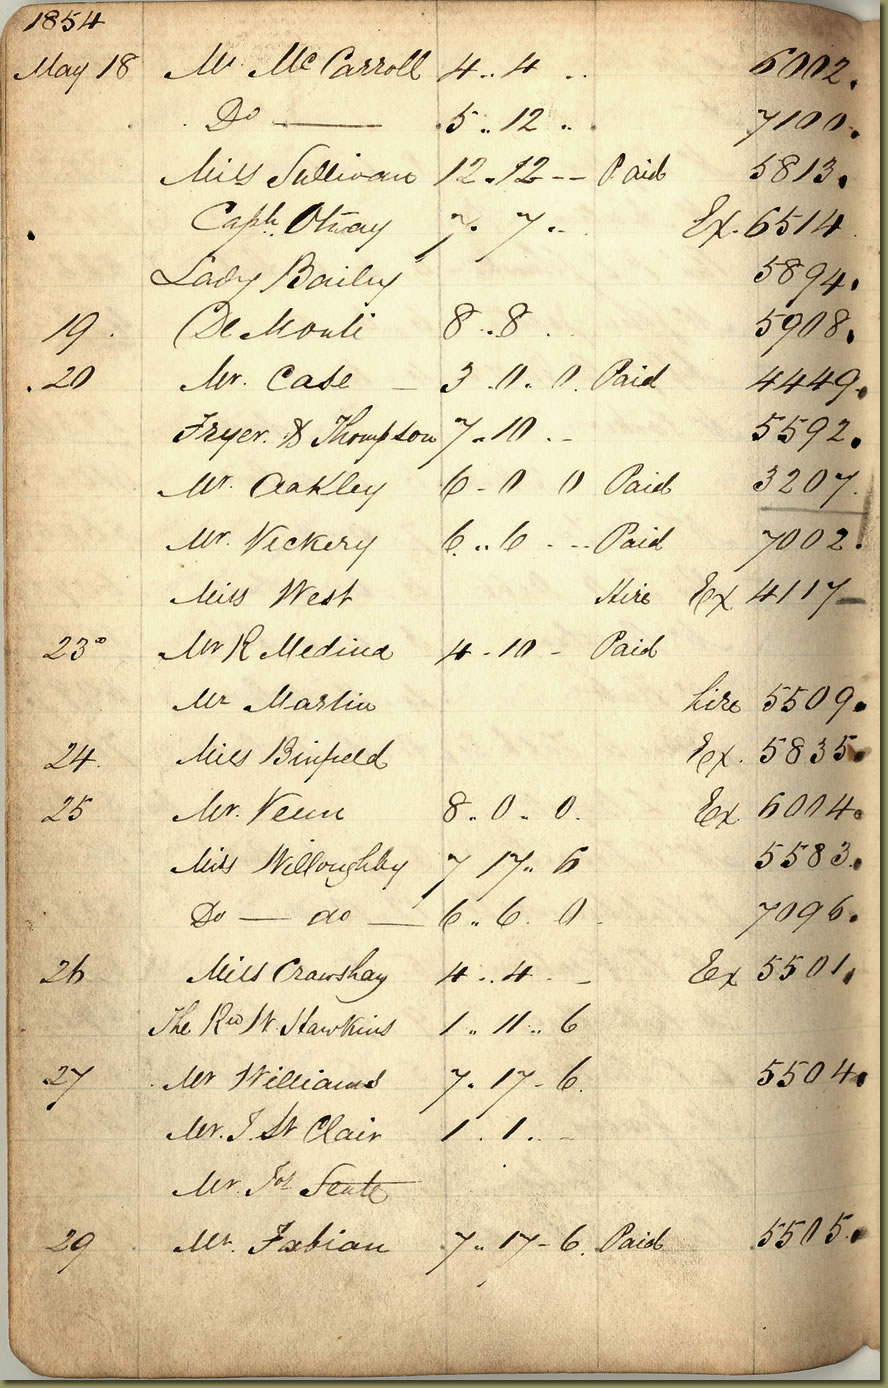 1854
May 18 Mr. McCarroll 4 .. 4 .. 6002.
Do —— 5 .. 12 .. 7100.
Miss Sullivan 12 .. 12 -- Paid 5813.
Capt. Otway 7. 7 .. Ex. 6514
Lady Bailey 5894.
19. De Monti 8 .. 8 . 5908.
.20 Mr. Case — 3 . 0 . 0. Paid 4449.
Fryer & Thompson 7 .. 10 .- 5592.
Mr. Oakley 6 - 0 0 Paid 3207.
Mr. Vickery 6 .. 6 --- Paid 7002.
Miss West Hire Ex 4117 —
23 Mr R Medina 4 - 10 - Paid
Mr Martin hire 5509.
24. Miss Binfield Ex. 5835.
25 Mr. Venn 8 . 0 . 0. Ex 6004.
Miss Willoughby 7 17 .. 6 5583.
Do — do — 6 .. 6. 0 . 7096.
26 Miss Crawshay 4 .. 4 . - Ex 5501.
The Rev W. Hawkins 1 .. 11 .. 6
27 Mr Williams 7. 17 - 6. 5504.
Mr. J. St Clair 1 . 1 . -
Mr. Jos
29 Mr. Fabian 7 .. 17 - 6. Paid 5505.